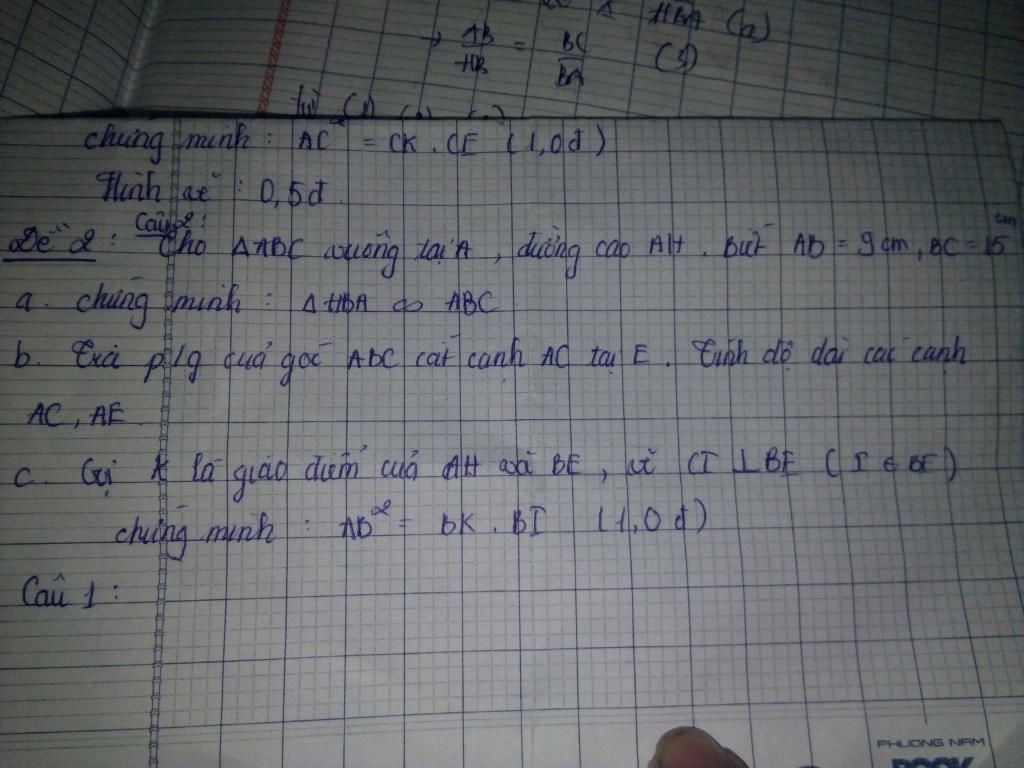 HBA (2)
→ AB/HB = BC/BA (3)
từ (1)
chứng minh : AC² = CK . CE (1,0đ)
Hình vẽ : 0,5đ
Câu 2 :
Đề 2 : Cho ΔABC vuông tại A , đường cao AH . Biết AB = 9cm , BC = 15cm
a. chứng minh : Δ HBA ∽ ABC
b. Tia p/g của góc ABC cắt cạnh AC tại E . Tính độ dài các cạnh
AC , AE
c. Gọi K là giao điểm của AH và BE , vẽ CI ⊥ BE ( I ∈ BE )
chứng minh : AB² = BK . BI (1,0 đ)
Câu 1 :
PHUONG NAM
BOOK